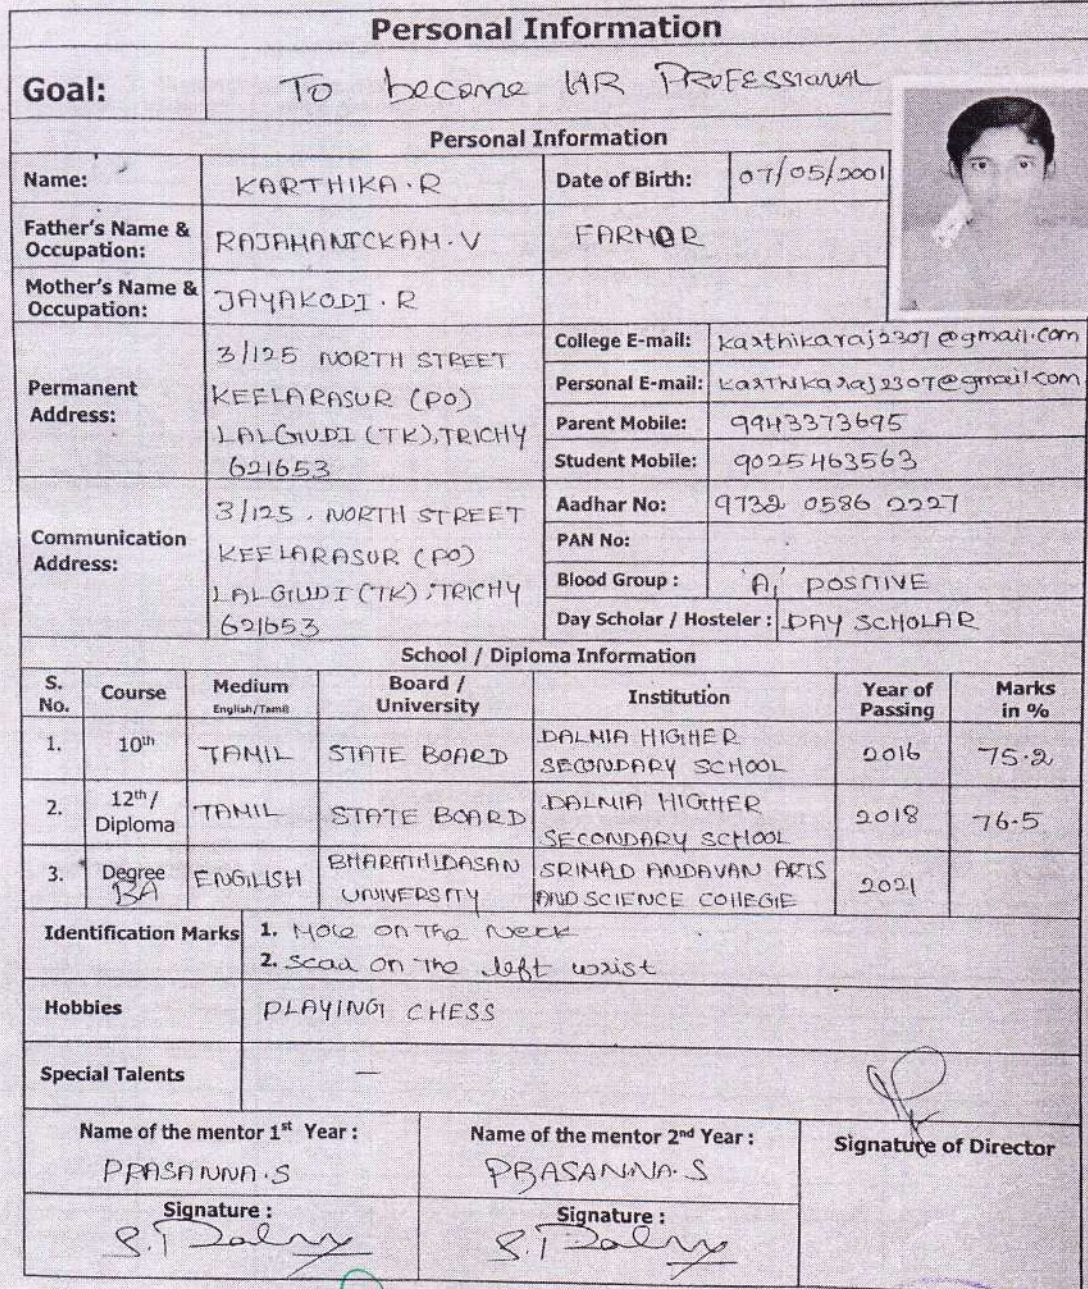 Personal Information
Goal: To become HR PROFESSIONAL
Personal Information
Name: KARTHIKA.R Date of Birth: 07/05/2001
Father's Name & Occupation: RAJAMANICKAM.V FARMOR
Mother's Name & Occupation: JAYAKODI.R
Permanent Address:
3/125 NORTH STREET
KEELARASUR (PO)
LALGIUDI (TK), TRICHY
621653
College E-mail: karthikaraj2307@gmail.com
Personal E-mail: karthikaraj2307@gmail.com
Parent Mobile: 9943373695
Student Mobile: 9025463563
Communication Address:
3/125, NORTH STREET
KEELARASUR (PO)
LALGIUDI (TK), TRICHY
621653
Aadhar No: 9732 0586 2227
PAN No:
Blood Group : 'A1' POSITIVE
Day Scholar / Hosteler : DAY SCHOLAR
School / Diploma Information
S. No. Course Medium English/Tamil Board / University Institution Year of Passing Marks in %
1. 10th TAMIL STATE BOARD DALMIA HIGHER SECONDARY SCHOOL 2016 75.2
2. 12th / Diploma TAMIL STATE BOARD DALMIA HIGHER SECONDARY SCHOOL 2018 76.5
3. Degree BA ENGLISH BHARATHIDASAN UNIVERSITY SRIMAD ANDAVAN ARTS AND SCIENCE COLLEGE 2021
Identification Marks 1. Mole on The Neck
2. Scad on The left wrist
Hobbies PLAYING CHESS
Special Talents —
Name of the mentor 1st Year : Name of the mentor 2nd Year : Signature of Director
PRASANNA.S PRASANNA.S
Signature : Signature :